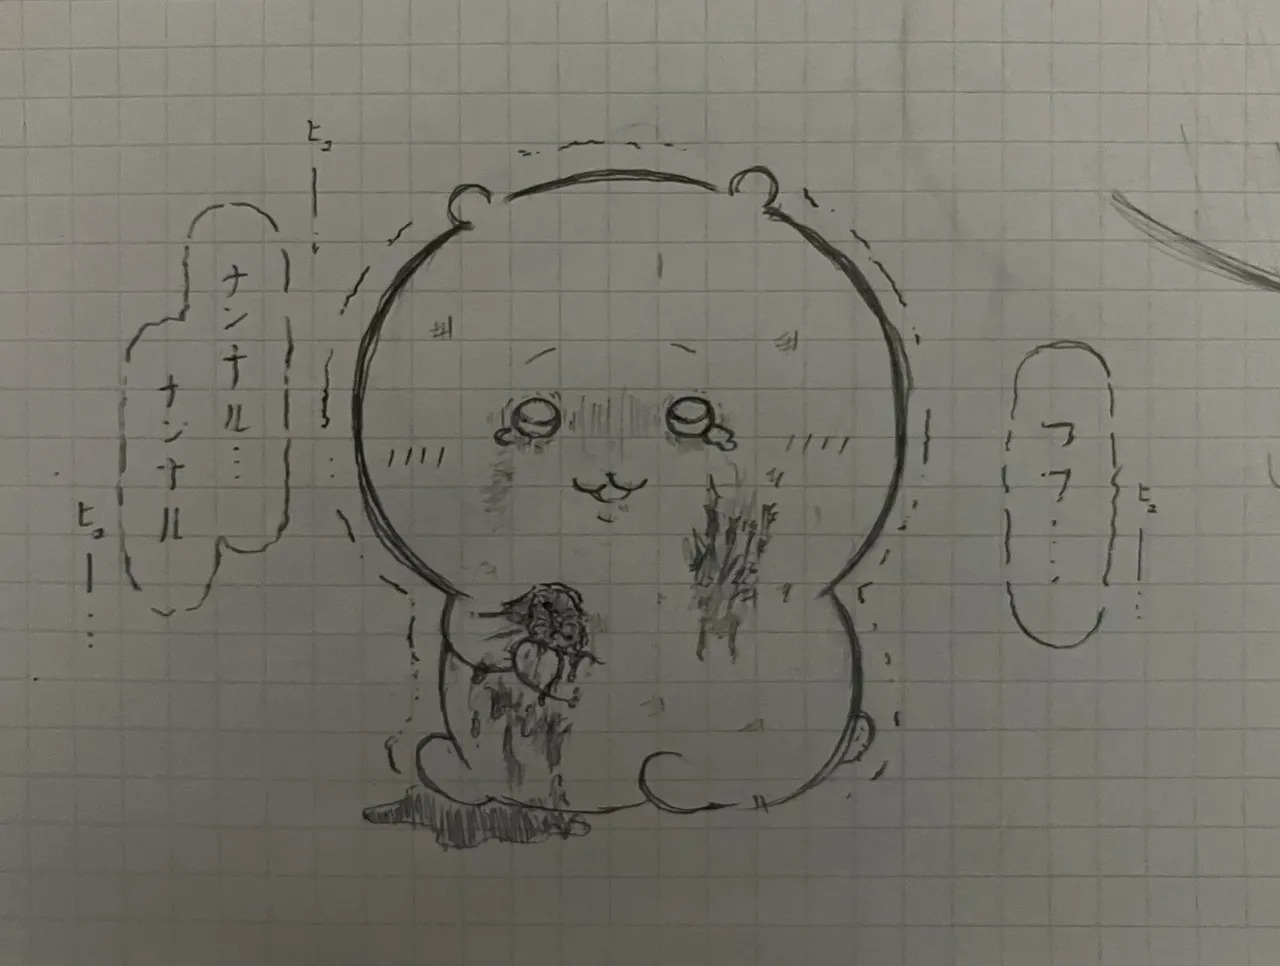 フフ……
ヒュー…
ナンナル…
ナンナル
ヒュー
ヒュー…